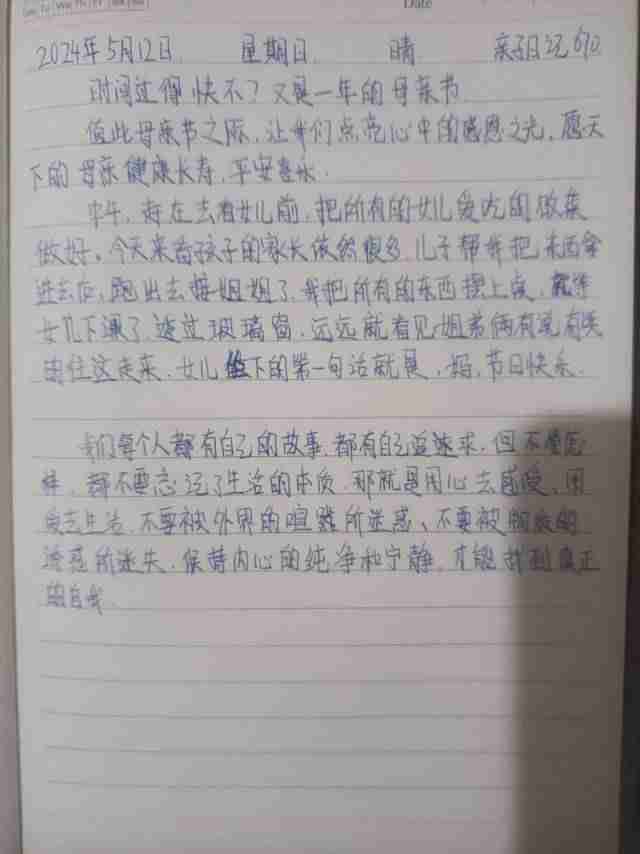 Date
2024年5月12日 星期日 晴 亲子日记 690
时间过得快不?又是一年的母亲节
值此母亲节之际,让我们点亮心中的感恩之光,愿天
下的母亲健康长寿,平安喜乐.
中午,赶在去看女儿前,把所有的女儿爱吃的做菜
做好,今天来看孩子的家长依然很多,儿子帮我把东西拿
进去后,跑出去接姐姐了,我把所有的东西摆上桌,就等
女儿下课了,透过玻璃窗,远远就看见姐弟俩有说有笑
的往这走来,女儿坐下的第一句话就是,妈,节日快乐.
我们每个人都有自己的故事,都有自己追求,但不管怎
样,都不要忘记了生活的本质,那就是用心去感受,用
爱去生活,不要被外界的喧嚣所迷惑、不要被物质的
诱惑所迷失,保持内心的纯净和宁静,才能找到真正
的自我.